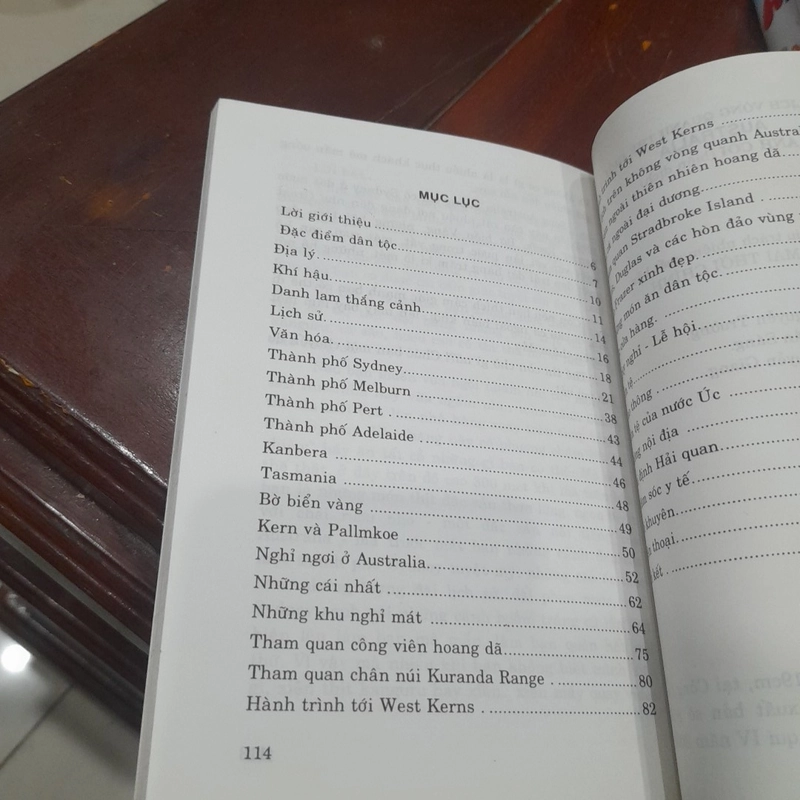 MỤC LỤC
Lời giới thiệu ........ 6
Đặc điểm dân tộc ........ 7
Địa lý ........ 10
Khí hậu ........ 11
Danh lam thắng cảnh ........ 14
Lịch sử ........ 16
Văn hóa ........ 18
Thành phố Sydney ........ 21
Thành phố Melburn ........ 38
Thành phố Pert ........ 43
Thành phố Adelaide ........ 44
Kanbera ........ 46
Tasmania ........ 48
Bờ biển vàng ........ 49
Kern và Pallmkoe ........ 50
Nghỉ ngơi ở Australia ........ 52
Những cái nhất ........ 62
Những khu nghỉ mát ........ 64
Tham quan công viên hoang dã ........ 75
Tham quan chân núi Kuranda Range ........ 80
Hành trình tới West Kerns ........ 82
114
trình tới West Kerns
trên không vòng quanh Austral
ngoài thiên nhiên hoang dã
ngoài đại dương
quan Stradbroke Island
Duglas và các hòn đảo vùng
xinh đẹp
món ăn dân tộc
hàng
nghỉ - Lễ hội
tệ
thông
tệ của nước Úc
nội địa
định Hải quan
sóc y tế
khuyên
thoại
kết